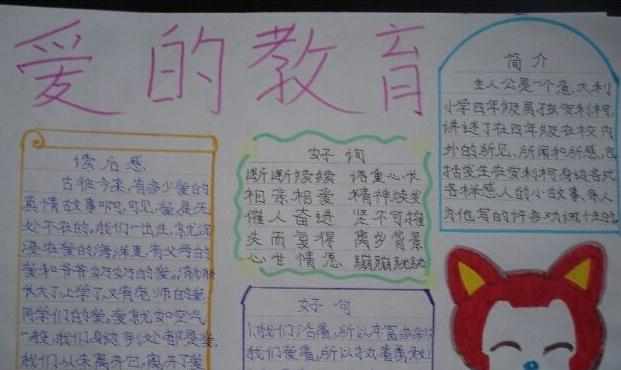 爱的教育
简介
主人公是一个意大利
小学四年级男孩安利柯,
讲述了在四年级在校内
外的所见,所闻和所感,包
括发生在安利柯身边各式
各样感人的小故事,亲人
为他写的许多
读后感
古往今来,有多少爱的
真情故事啊,可见,爱是无
处不在的,我们一出生,就沉
浸在爱的海洋里,有父母的
爱和爷爷奶奶的爱,渐渐
长大了,上学了,又有老师的爱
同学们的爱,爱就如空气
一般,我们身边到处都是爱,
我们从未离开它,离开了爱
好词
断断续续 语重心长
相亲相爱 精神焕发
催人奋进 坚不可摧
失而复得 离乡背景
心甘情愿 蹦蹦跳跳
好句
1.我们活着,所以丰富
我们爱着,所以